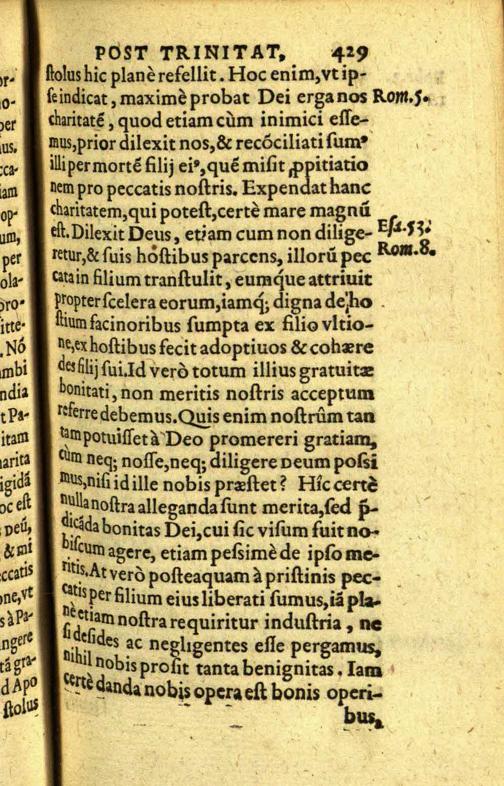 POST TRINITAT, 429
ſtolus hic planè refellit. Hoc enim, vt ip-
ſe indicat, maximè probat Dei erga nos Rom.5.
charitatē, quod etiam cùm inimici eſſe-
mus, prior dilexit nos, & recōciliati ſumꝰ
illi per mortē filij eiꝰ, quē miſit ꝓpitiatio
nem pro peccatis noſtris. Expendat hanc
charitatem, qui poteſt, certè mare magnū
eſt. Dilexit Deus, etiam cum non dilige- Eſa.53.
retur, & ſuis hoſtibus parcens, illorū pec Rom.8.
cata in filium tranſtulit, eumq́ue attriuit
propter ſcelera eorum, iamq́; digna de ho
ſtium facinoribus ſumpta ex filio vltio-
ne, ex hoſtibus fecit adoptiuos & cohære
des filij ſui. Id verò totum illius gratuitæ
bonitati, non meritis noſtris acceptum
referre debemus. Quis enim noſtrûm tan
tam potuiſſet à Deo promereri gratiam,
cùm neq; noſſe, neq; diligere Deum poſſi
mus, niſi id ille nobis præſtet? Hîc certè
nulla noſtra alleganda ſunt merita, ſed p̄-
dicāda bonitas Dei, cui ſic viſum fuit no-
biſcum agere, etiam peſsimè de ipſo me-
ritis. At verò poſteaquam à priſtinis pec-
catis per filium eius liberati ſumus, iā pla-
nè etiam noſtra requiritur induſtria, ne
ſi deſides ac negligentes eſſe pergamus,
nihil nobis proſit tanta benignitas. Iam
certè danda nobis opera eſt bonis operi-
bus,
or-
no-
per
nus.
cca-
iam
op-
um,
per
ola-
pro-
itte-
. Nó
mbi
ndia
t Pa-
itam
harita
igidā
oc eſt
Deū,
& mi
ccatis
one, vt
s à Pa-
ngere
tā gra-
d Apo
ſtolus